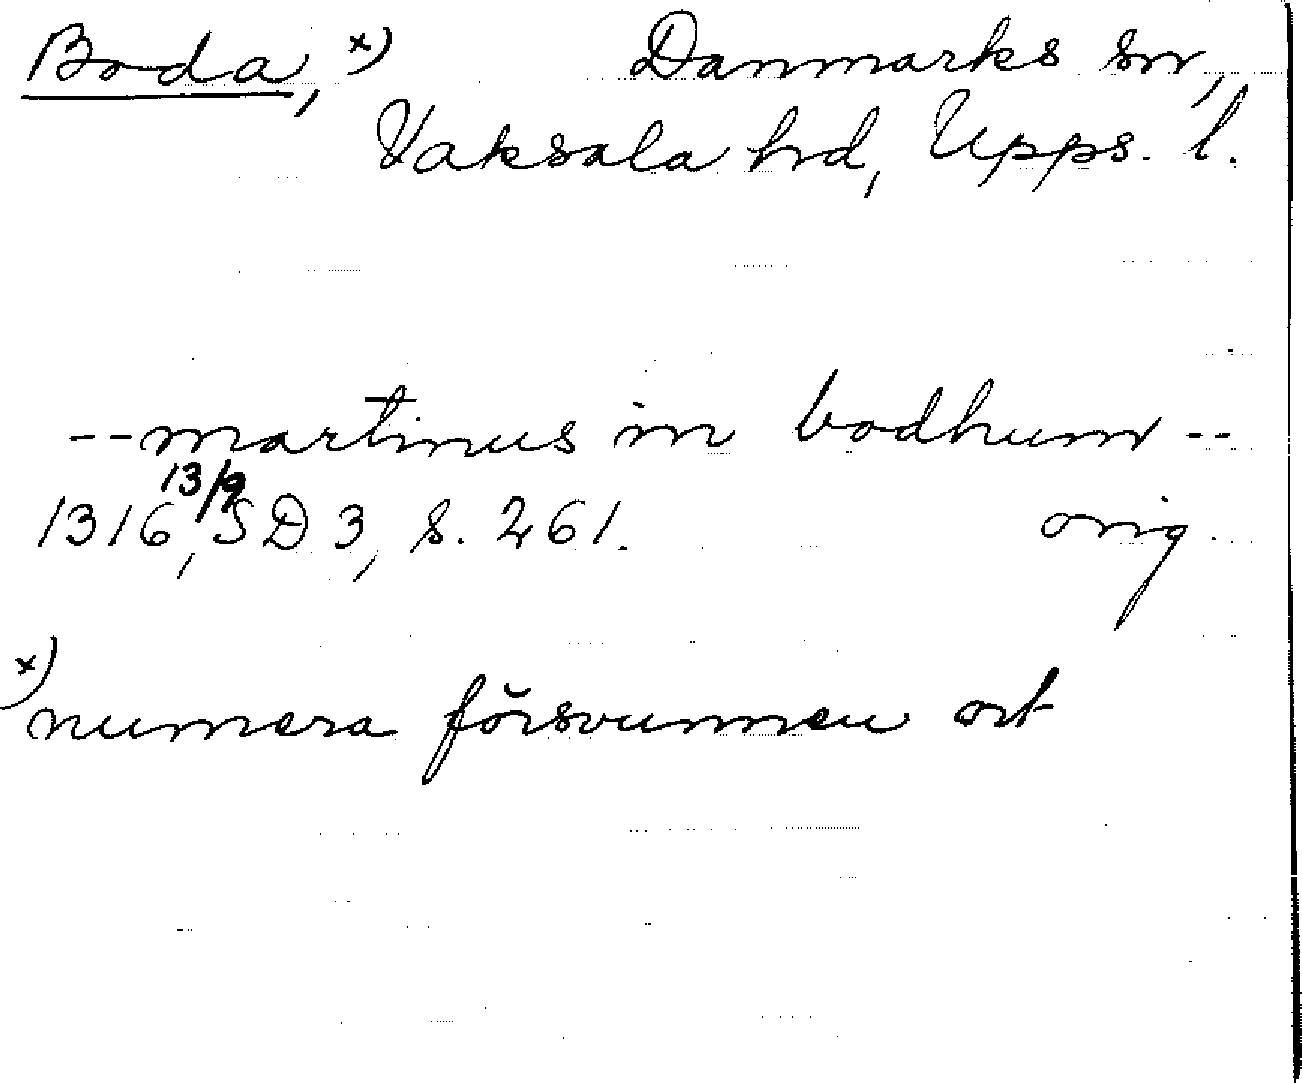 Boda, x) Danmarks sn,
Vaksala hd, Upps. l.
--martinus in bodhum--
1316 13/9, SD 3, s. 261. orig.
x)
numera försvunnen ort